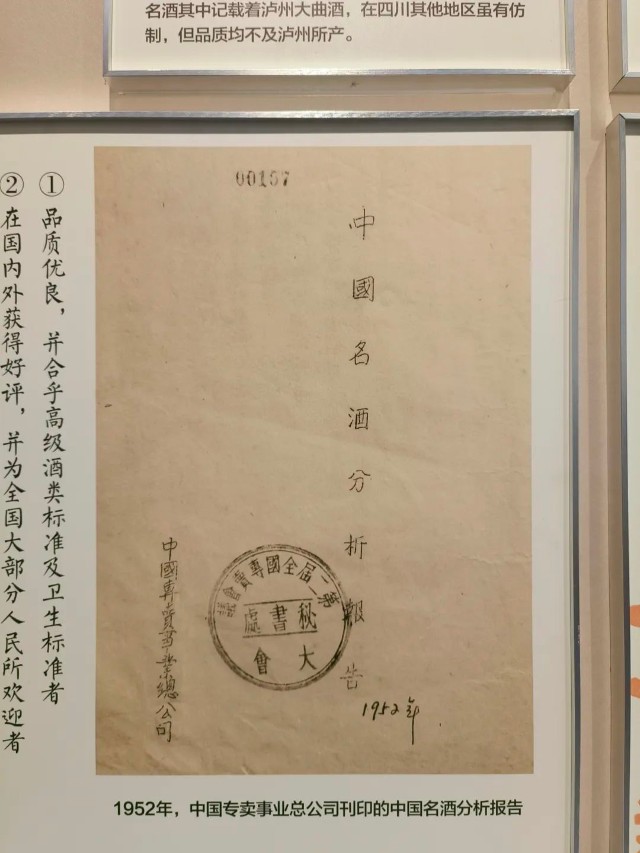 名酒其中记载着泸州大曲酒，在四川其他地区虽有仿
制，但品质均不及泸州所产。
① 品质优良，并合乎高级酒类标准及卫生标准者
② 在国内外获得好评，并为全国大部分人民所欢迎者
00157
中國名酒分析報告
1952年
第二届全國專賣會議
秘書處
大會
中國專賣事業總公司
1952年，中国专卖事业总公司刊印的中国名酒分析报告